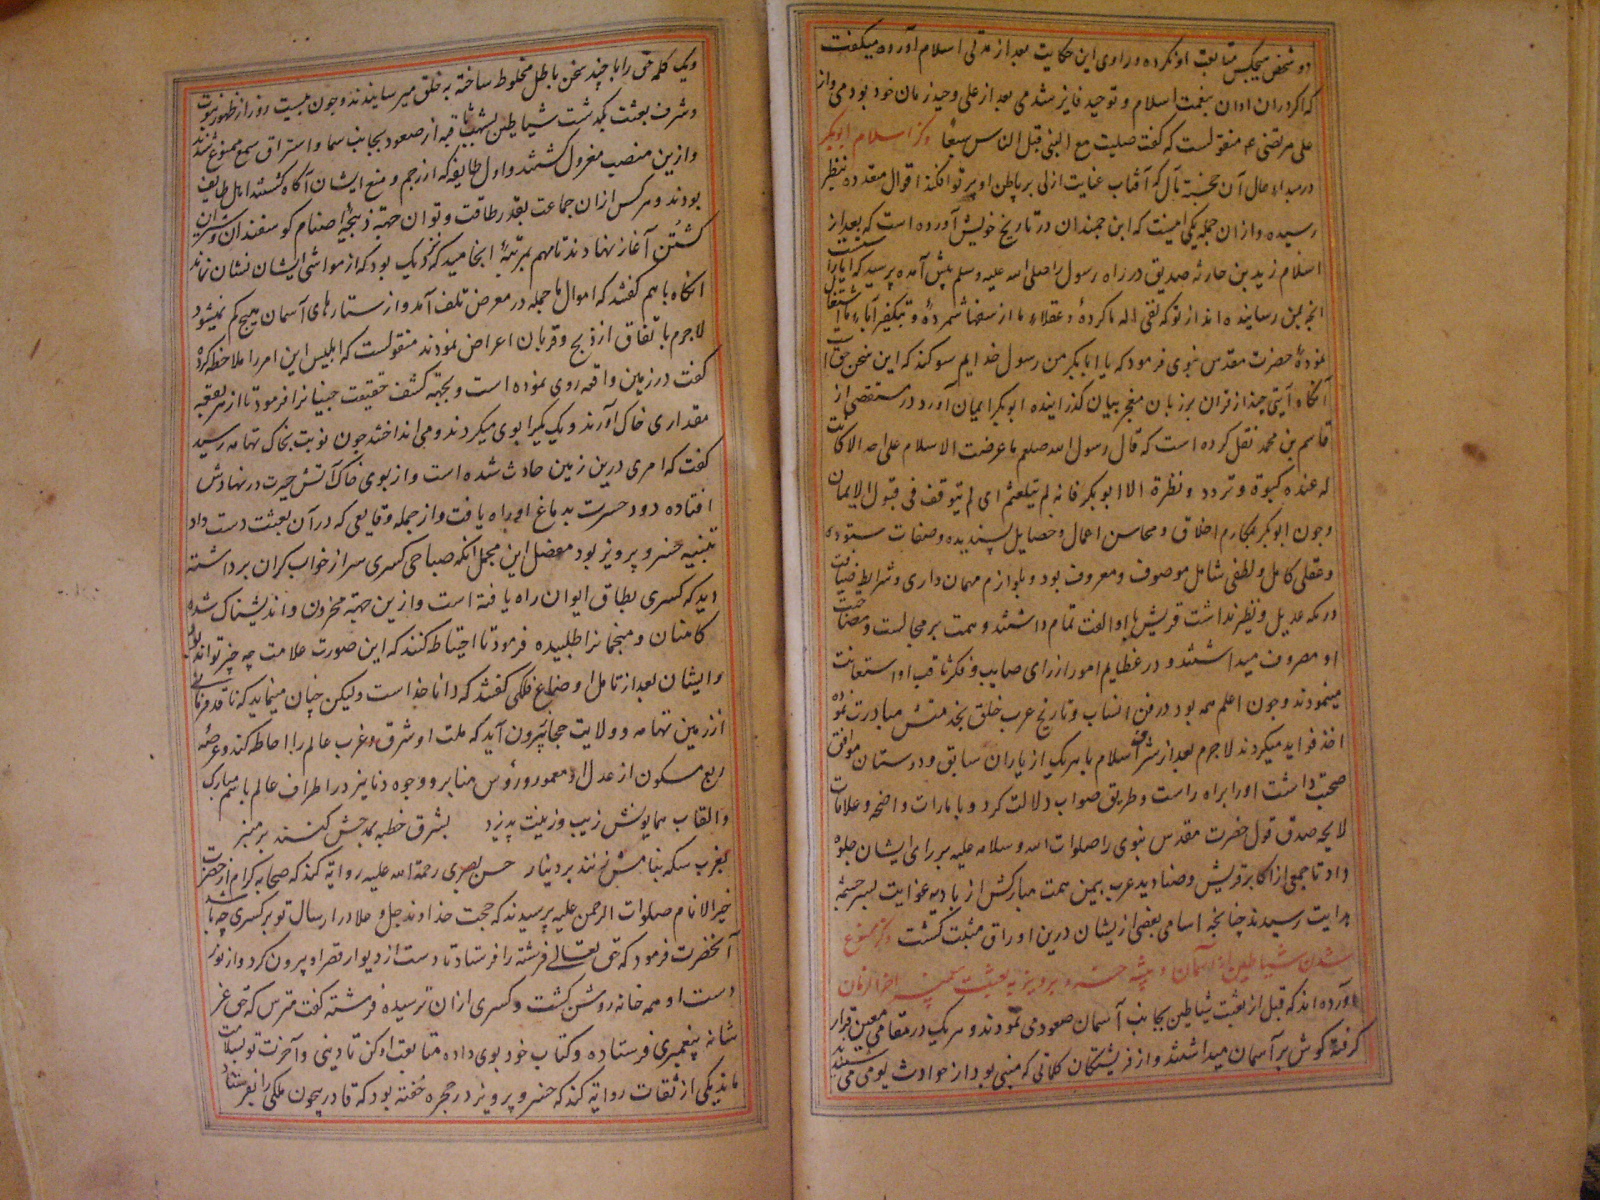 دو شخص هیچکس متابعت او نکرده و راوی این حکایت بعد از مدتی اسلام آورده میگفت
که اگر در ان اوان بنعمت اسلام و توحید فایز میشدمی بعد از علی وحید زمان خود بودمی و از
علی مرتضی عه منقولست که گفت صلیت مع النبی قبل الناس سبعا ذکر اسلام ابوبکر
در مبدا حال آن خجسته مآل که آفتاب عنایت ازلی بر باطن او پرتو افکند اقوال متعدده بنظر
رسیده و ازان جمله یکی اینست که در تاریخ خویش آورده است که بعد از
اسلام زید بن حارثه صدیق در راه رسول را صلی الله علیه وسلم پیش آمده پرسید که ایا راست
انچه بمن رسانیده اند از تو که نفی اله ما کردهٔ و عقلاء ما از سفها شمردهٔ و بتکفیر آباء ما اشتغال
نمودهٔ حضرت مقدس نبوی فرمود که یا ابابکر من رسول خدایم سوکند که این سخن حق است
آنگاه آیتی چند از قران بر زبان معجز بیان گذرانیده ابوبکر ایمان آورد در مستقصی از
قاسم بن محمد نقل کرده است که قال رسول الله صلعم ما عرضت الاسلام علی احد الا کانت
له عنده کبوة و تردد و نظرة الا ابوبکر فانه لم یتلعثم ای لم یتوقف فی قبول الایمان
و چون ابوبکر بمکارم اخلاق و محاسن اعمال و خصایل پسندیده و صفات ستوده
و عقلی کامل و لطفی شامل موصوف و معروف بود و بلوازم مهمان داری و شرایط ضیافت
در مکه عدیل و نظیر نداشت قریش با او الفت تمام داشتند و همت بر مجالست و مصاحبت
او مصروف میداشتند و در عظایم امور از رای صایب و فکر ثاقب او استعانت
مینمودند و چون اعلم همه بود در فن انساب و تاریخ عرب خلق بخدمتش مبادرت نموده
اخذ فواید میکردند لاجرم بعد از شرف اسلام با هر یک از یاران سابق و دوستان موافق
صحبت داشت او را براه راست و طریق صواب دلالت کرد و با مارات واضحه و علامات
لایحه صدق قول حضرت مقدس نبوی را صلوات الله و سلامه علیه بر رای ایشان جلوه
داد تا جمعی از اکابر قریش و صنادید عرب بیمن همت مبارکش از بادیه غوایت بسرچشمه
هدایت رسیدند چنانچه اسامی بعضی از یشان درین اوراق مثبت کشت ذکر ممنوع
شدن شیاطین از آسمان و خسرو پرویز به بعثت پیغمبر اخر الزمان
آورده اند که قبل از بعثت شیاطین بجانب آسمان صعود می نمودند و هر یک در مقامی معین قرار
گرفته کوش بر آسمان میداشتند و از فریشتکان کلماتی که مبنی بود از حوادث یومی می شنیدند
و یک کلمه حق را با چند سخن باطل مخلوط ساخته به خلق میرسانیدند و چون بیست روز از ظهور نبوت
و شرف بعثت بگذشت شیاطین بشهب ثاقبه از صعود بجانب سما و استراق سمع ممنوع شدند
و ازین منصب معزول گشتند و اول طایفه که از رجم و منع ایشان آگاه گشتند اهل طایف
بودند و هر کس ازان جماعت بقدر طاقت و توان جهة ذبیحهٔ اصنام گوسفندان و شتران
کشتن آغاز نهادند تا مهم بمرتبهٔ انجامید که نزدیک بود که از مواشی ایشان نشان نماند
انگاه با هم گفتند که اموال ما جمله در معرض تلف آمد و از ستارهای آسمان هیچ کم نمیشود
لاجرم باتفاق از ذبح و قربان اعراض نمودند منقولست که ابلیس این امر را ملاحظه کرده
گفت در زمین واقعه روی نموده است و بجهة کشف حقیقت جنیانرا فرمود تا از هر بقعه
مقداری خاک آورند و یک یکیرا بوی میکردند و می انداختند چون نوبت بخاک تهامه رسید
گفت که امری درین زمین حادث شده است و از بوی خاک آتش حیرت در نهادش
افتاده دود حسرت بدماغ او راه یافت و از جمله وقایعی که در آن بعثت دست داد
تنبیه خسرو پرویز بود مفصل این مجمل انکه صباحی کسری سر از خواب گران برداشته
دید که کسری بطاق ایوان راه یافته است و ازین جهة محزون و اندیشناک شده
کاهنان و منجمانرا طلبیده فرمود تا احتیاط کنند که این صورت علامت چه چیز تواند بود
و ایشان بعد از تامل اوضاع فلکی گفتند که دانا خداست ولیکن چنان مینماید که نافذ فرمانی
از زمین تهامه و ولایت حجاز بیرون آید که ملت او شرق و غرب عالم را احاطه کند و عرصهٔ
ربع مسکون از عدل او معمور و رؤس منابر و وجوه دنانیر در اطراف عالم باسم مبارک
و القاب همایونش زیب و زینت پذیرد بشرق خطبه بمدحش کنند بر منبر
بغرب سکه بنامش زنند بر دینار حسن بصری رحمة الله علیه روایة کند که صحابه کرام از حضرت
خیر الانام صلوات الرحمن علیه پرسیدند که حجت خداوند جل و علا در ارسال تو بر کسری چه باشد
آنحضرت فرمود که حق تعالی فرشته را فرستاد تا دست از دیوار قصر او بیرون کرد و از نور
دست او همه خانه روشن گشت و کسری ازان ترسیده فرشته گفت مترس که حق عز
شانه پیغمبری فرستاده و کتاب خود بوی داده متابعت او کن تا دینی و آخرت تو بسلامت
ماند یکی از ثقات روایة کند که خسرو پرویز در حجره خفته بود که قادر بیچون ملکی را بفرستاد